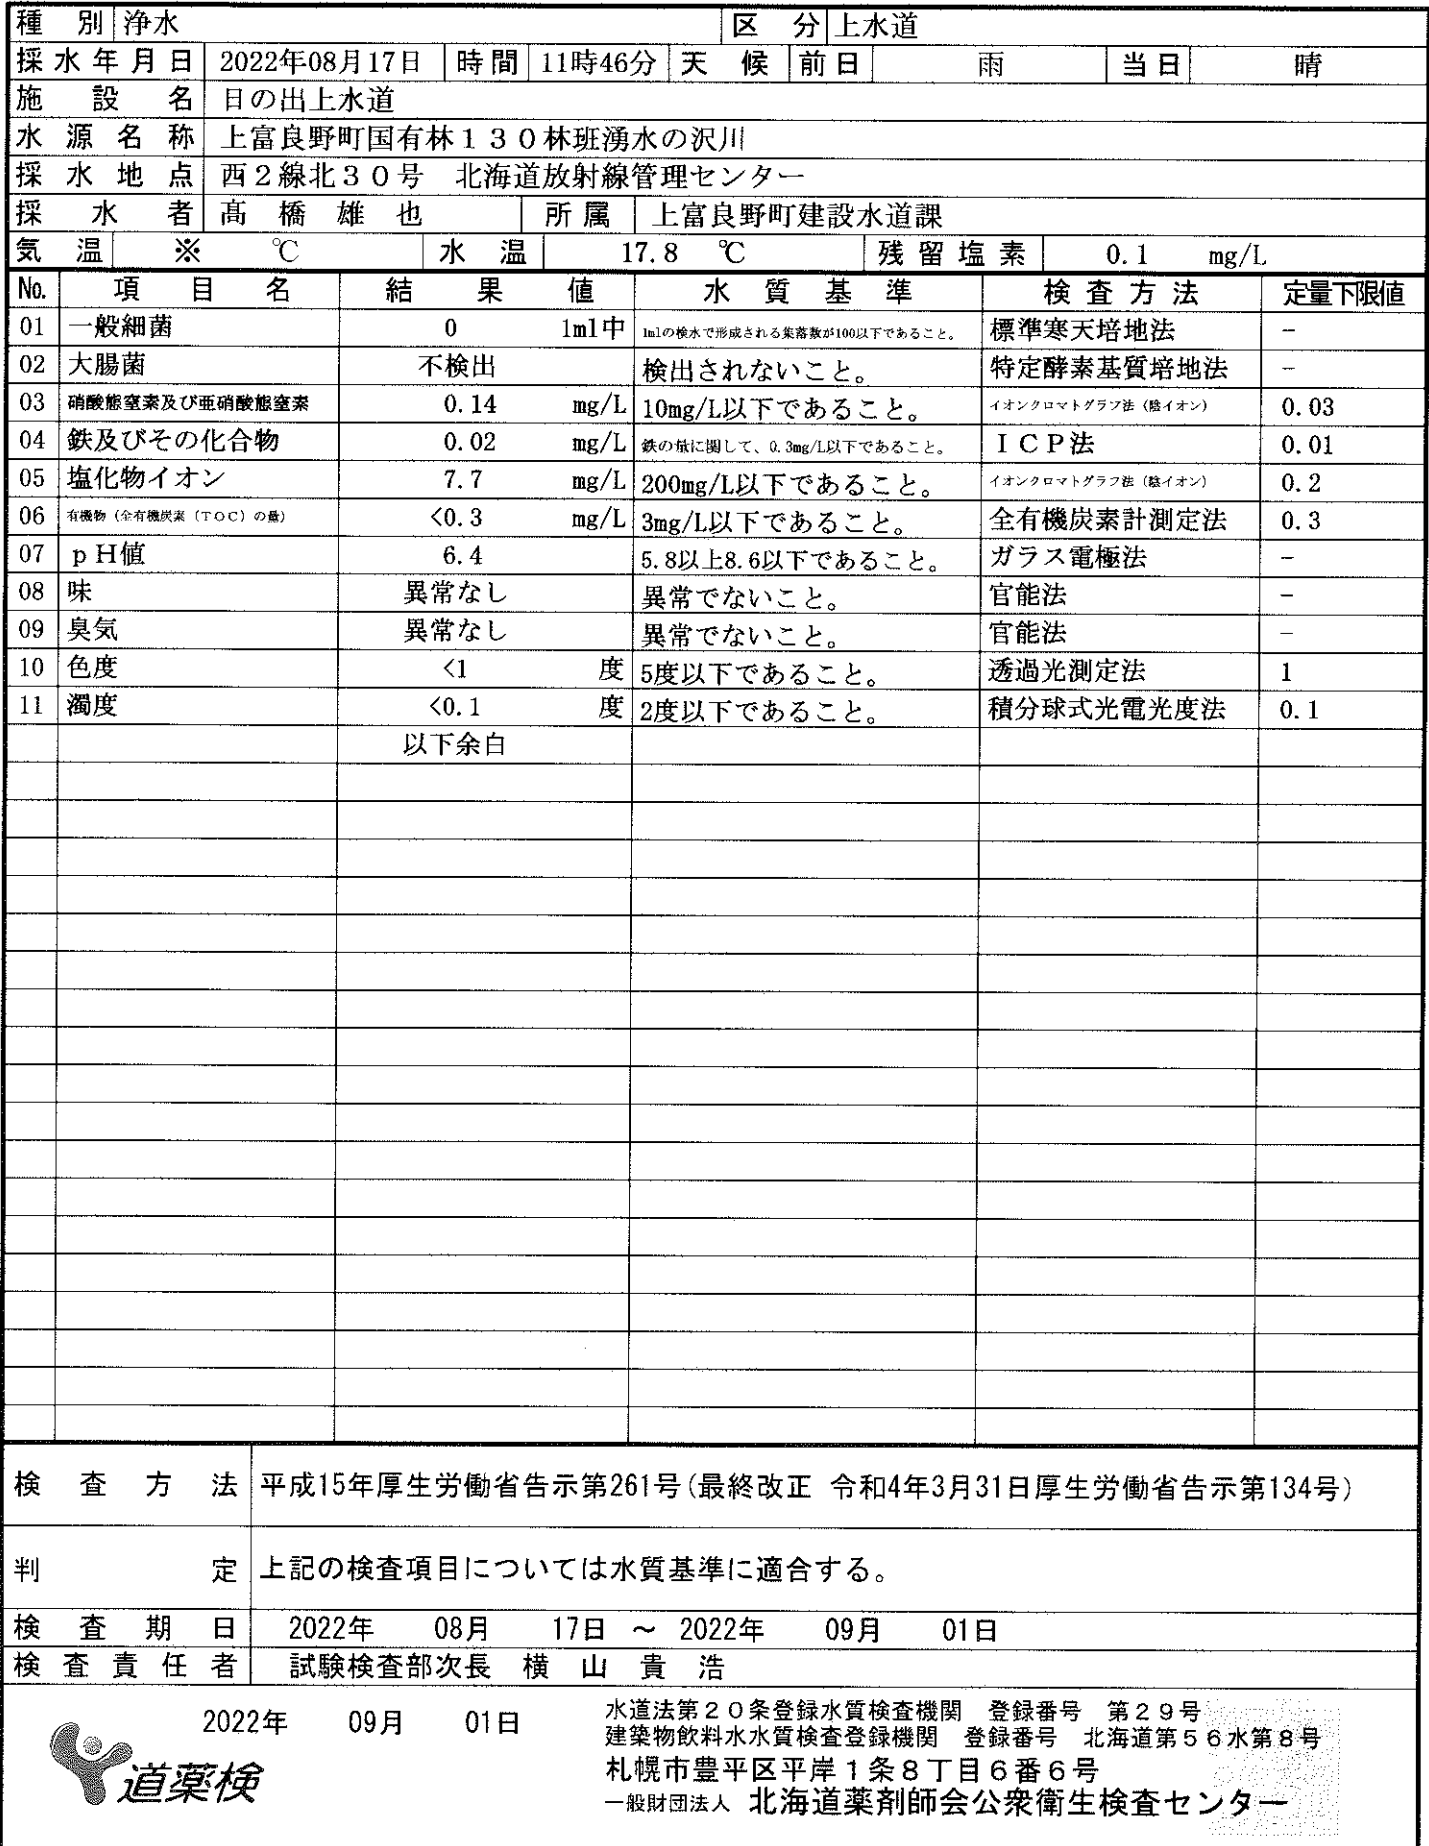 種別 浄水 区分 上水道
採水年月日 2022年08月17日 時間 11時46分 天候 前日 雨 当日 晴
施設名 日の出上水道
水源名称 上富良野町国有林130林班湧水の沢川
採水地点 西2線北30号 北海道放射線管理センター
採水者 髙橋雄也 所属 上富良野町建設水道課
気温 ※ ℃ 水温 17.8 ℃ 残留塩素 0.1 mg/L
No. 項目名 結果値 水質基準 検査方法 定量下限値
01 一般細菌 0 1ml中 1mlの検水で形成される集落数が100以下であること。 標準寒天培地法 -
02 大腸菌 不検出 検出されないこと。 特定酵素基質培地法 -
03 硝酸態窒素及び亜硝酸態窒素 0.14 mg/L 10mg/L以下であること。 イオンクロマトグラフ法(陰イオン) 0.03
04 鉄及びその化合物 0.02 mg/L 鉄の量に関して、0.3mg/L以下であること。 ICP法 0.01
05 塩化物イオン 7.7 mg/L 200mg/L以下であること。 イオンクロマトグラフ法(陰イオン) 0.2
06 有機物(全有機炭素(TOC)の量) <0.3 mg/L 3mg/L以下であること。 全有機炭素計測定法 0.3
07 pH値 6.4 5.8以上8.6以下であること。 ガラス電極法 -
08 味 異常なし 異常でないこと。 官能法 -
09 臭気 異常なし 異常でないこと。 官能法 -
10 色度 <1 度 5度以下であること。 透過光測定法 1
11 濁度 <0.1 度 2度以下であること。 積分球式光電光度法 0.1
以下余白
検査方法 平成15年厚生労働省告示第261号(最終改正 令和4年3月31日厚生労働省告示第134号)
判定 上記の検査項目については水質基準に適合する。
検査期日 2022年 08月 17日 ～ 2022年 09月 01日
検査責任者 試験検査部次長 横山貴浩
2022年 09月 01日
道薬検
水道法第20条登録水質検査機関 登録番号 第29号
建築物飲料水水質検査登録機関 登録番号 北海道第56水第8号
札幌市豊平区平岸1条8丁目6番6号
一般財団法人 北海道薬剤師会公衆衛生検査センター